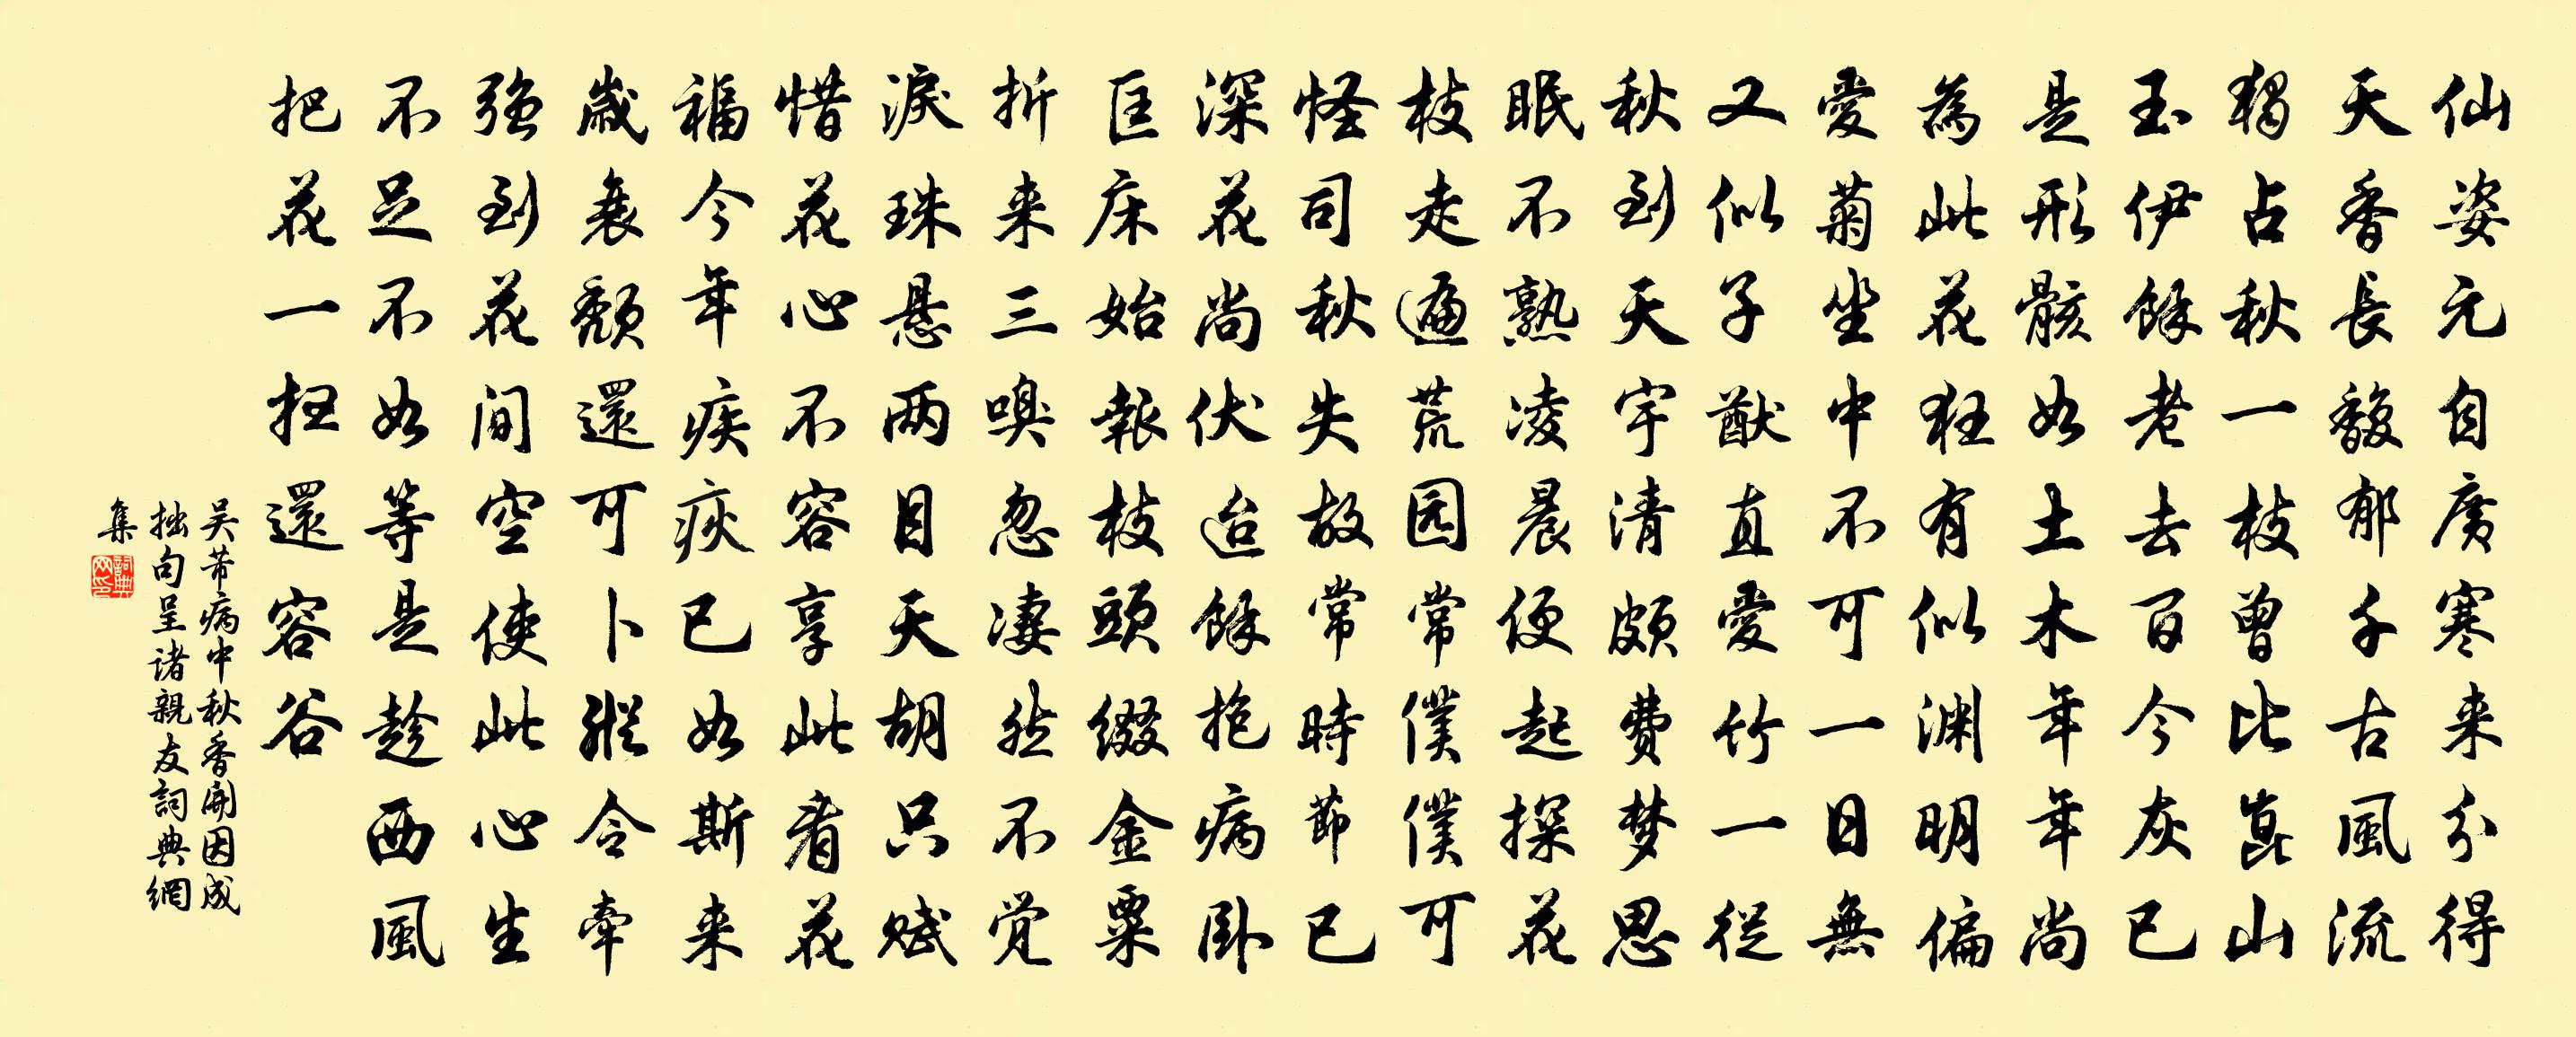 仙姿元自廣寒来分得
天香長馥郁千古風流
獨占秋一枝曾比崑山
玉伊餘老去百今灰已
是形骸如土木年年尚
為此花狂有似渊明偏
愛菊坐中不可一日無
又似子猷直愛竹一從
秋到天宇清頗費梦思
眠不熟凌晨便起探花
枝走遍荒园常僕僕可
怪司秋失故常時節已
深花尚伏迨餘抱病卧
匡床始報枝頭綴金粟
折来三嗅忽凄然不觉
淚珠悬两目天胡只赋
惜花心不容享此看花
福今年疾疢已如斯来
歲衰颓還可卜縱令牽
强到花间空使此心生
不足不如等是趁西風
把花一抂還容谷
吴芾病中秋香開因成
拙句呈诸親友詞典網
集
詞典网印